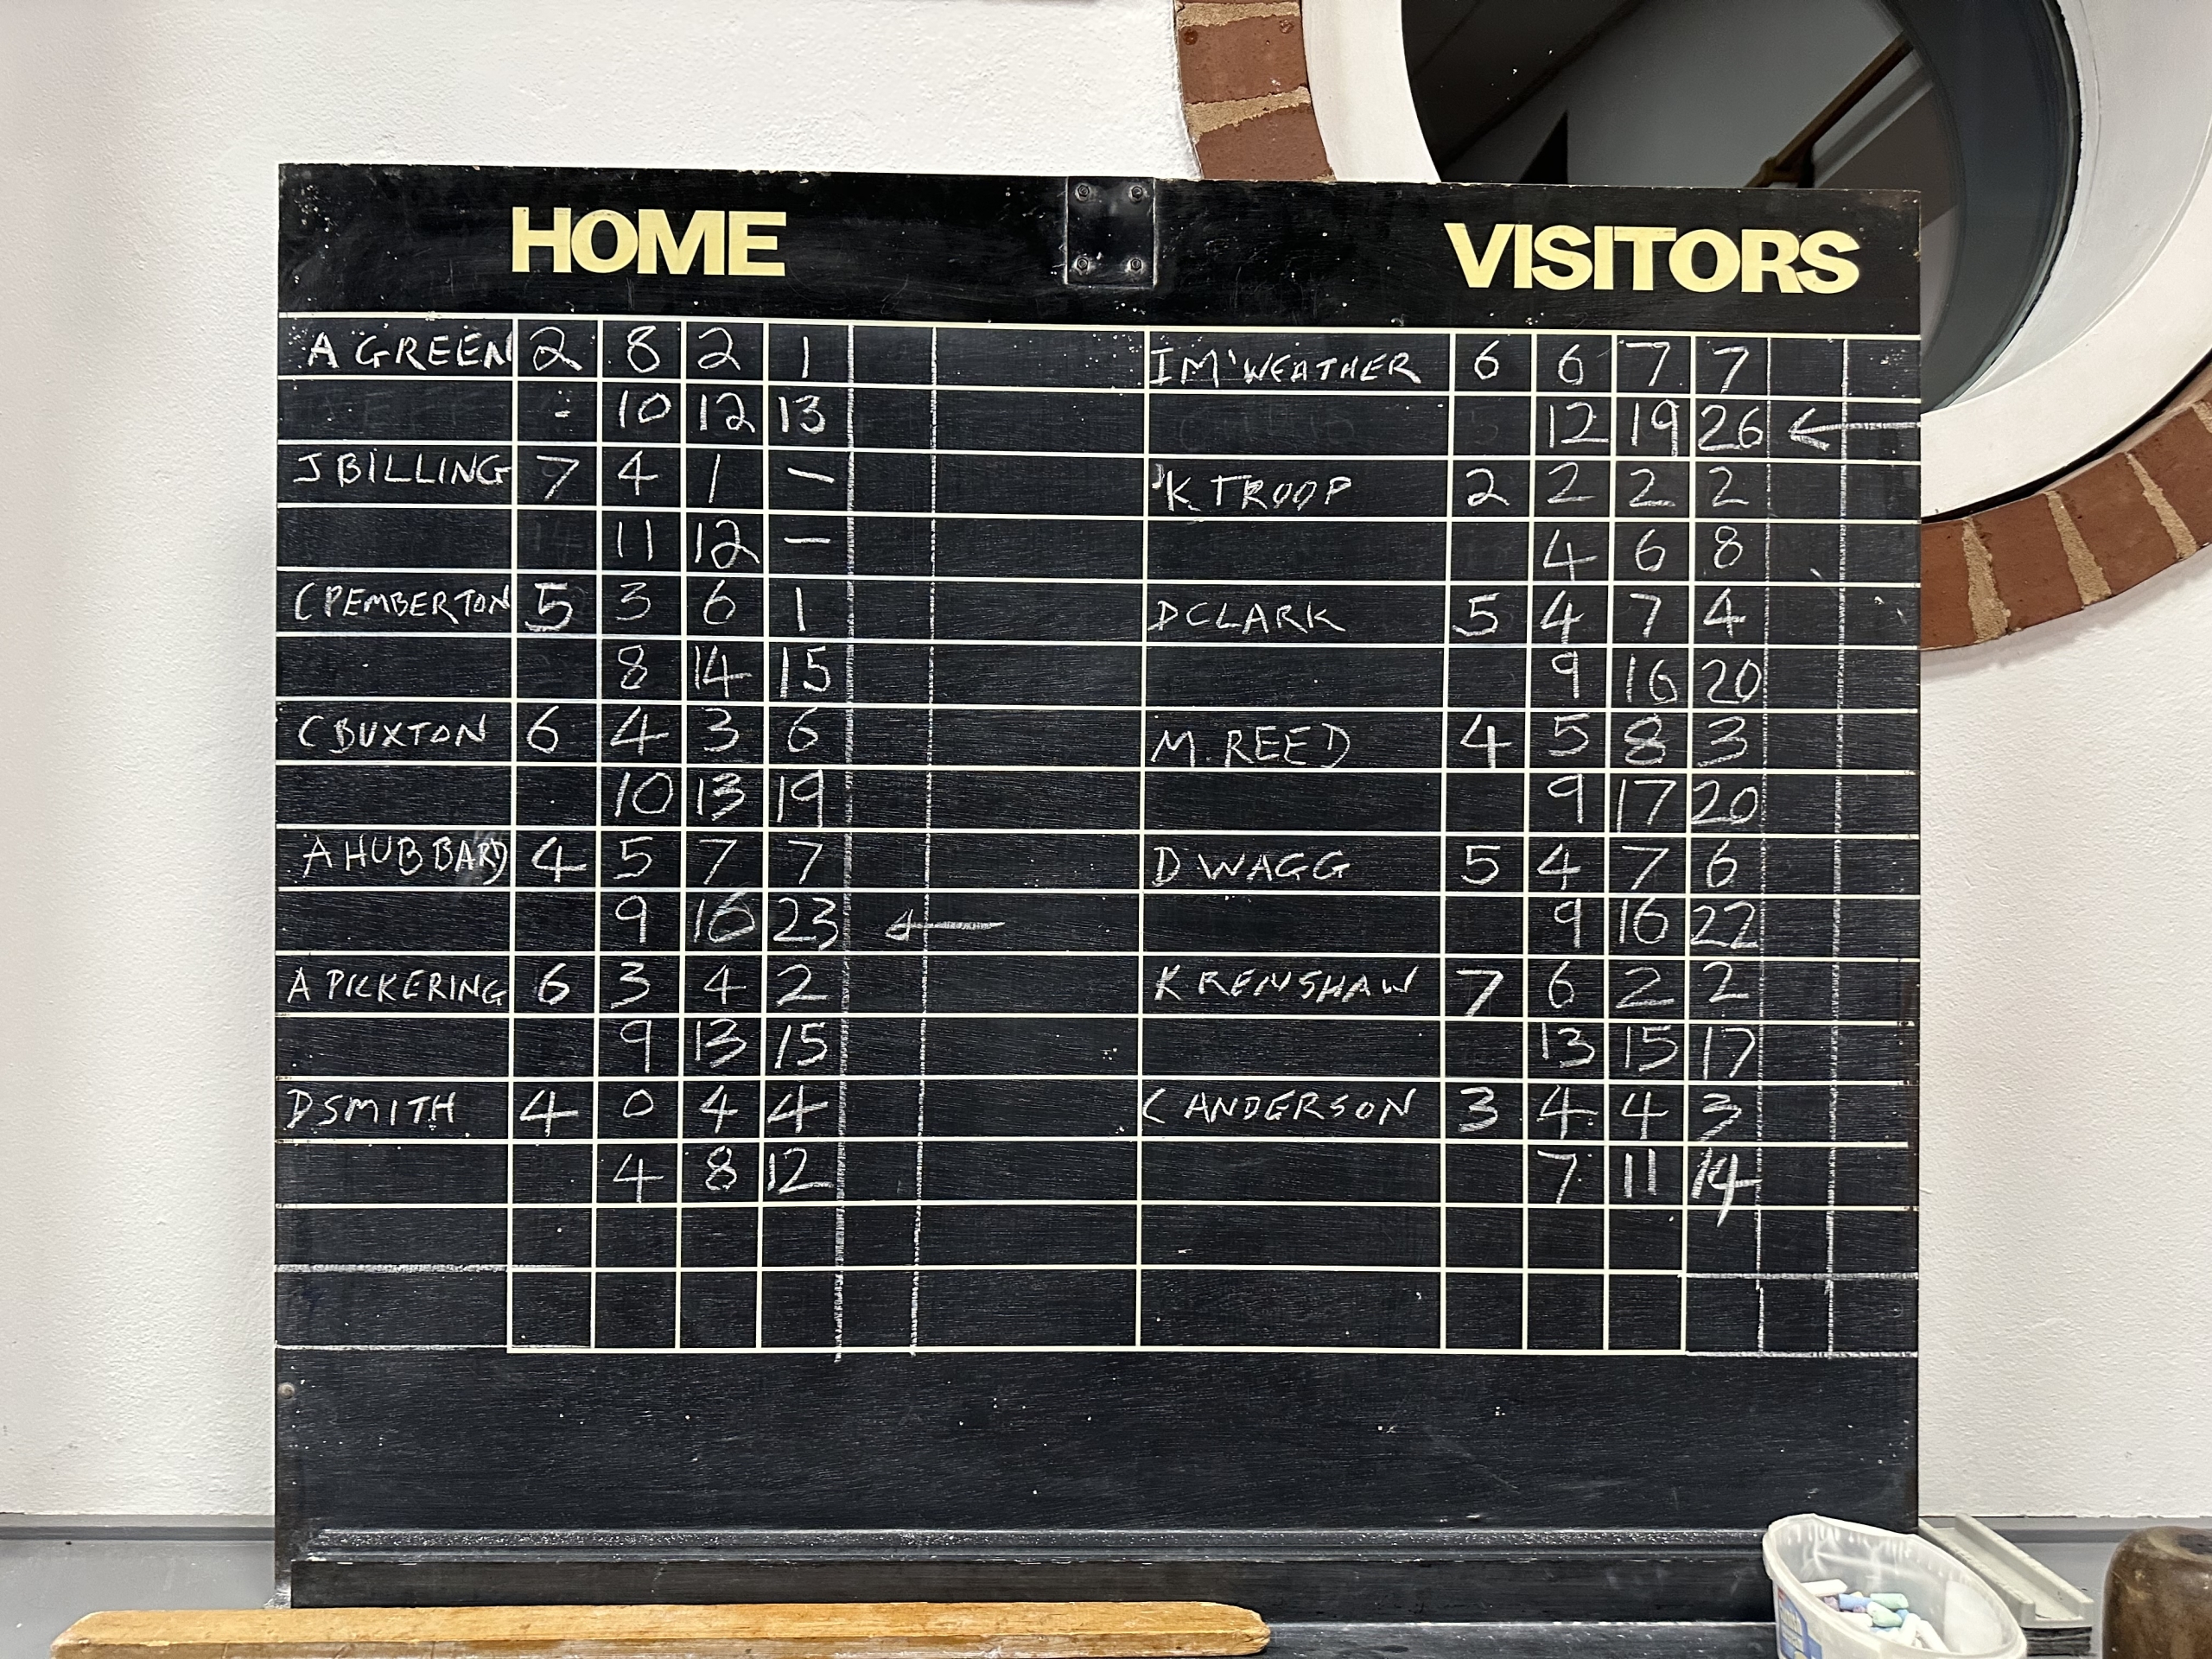 HOME VISITORS
A GREEN 2 8 2 1 I M'WEATHER 6 6 7 7
- 10 12 13 12 19 26 ←
J BILLING 7 4 1 - K TROOP 2 2 2 2
11 12 - 4 6 8
C PEMBERTON 5 3 6 1 D CLARK 5 4 7 4
8 14 15 9 16 20
C BUXTON 6 4 3 6 M. REED 4 5 8 3
10 13 19 9 17 20
A HUBBARD 4 5 7 7 D WAGG 5 4 7 6
9 16 23 ← 9 16 22
A PICKERING 6 3 4 2 K RENSHAW 7 6 2 2
9 13 15 13 15 17
D SMITH 4 0 4 4 C ANDERSON 3 4 4 3
4 8 12 7 11 14